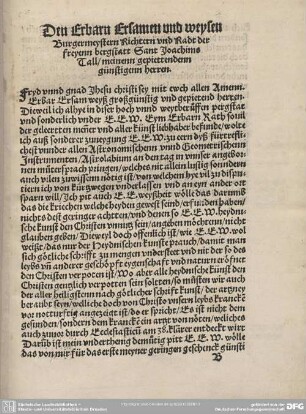 Den Erbarn Ersamen vnd weysen
Burgermeystern Richtern vnd Radt der
freyenn bergstatt Sant Joachims
Tall/ meinenn gepiettendenn
günstigenn herren.
Fryd vnnd gnad Jhesu christi sey mit ewch allen Amenn.
Erbar Ersam weyß großgünstig vnd gepietend herren.
Dieweil ich alhye in diser hoch vnnd weytberüfften pergstat
vnd sonderlich vnder E. E. W. Eym Erbarn Rath sovil
der geleertten mener vnd aller künst liebhaber befinde/ wolte
ich auß sonderer zuneygung E. E. W. zu eern dyß fürtreffli
chest vnnder allen Astronomischenn vnnd Geometrischenn
Instrumenten/ Astrolabium an den tag in vnser angebor
nen mütersprach pringen/ welches nit allein lustig sonndern
auch vilen zuwissenn nötig ist/ von welchem hye vil zu dispu
tiern ich von kürtzwegen vnderlassen vnd an eyn ander ort
sparn will/ Jch pit auch E. E. weysheit wölle das darumb
das die kriechen welche heyden gewest seind/ erfunden haben/
nichts dest geringer achtten/ vnd denen so E. E. W. heydni
sche künst den Christen vnnutz sein/ angeben möchtenn/ nicht
glauben geben/ Dieweyl doch offenlich ist/ wie E. E. W. wol
weiste das nur der Heydnischen kunste prauch/ damit man
sich götliche schrifft zu mengen vnderstect vnd nit der so des
leybs vñ anderer geschöpff eygenschafft vnd natur nach
den Christen verpoten ist/ Wo aber alle heydnische künst den
Christen gentzlich verpotten sein solten/ so müsten wir auch
der aller heiligstenn nach götlicher schrifft kunst/ der artzney
der anbt seyn/ welliche doch von Christo vnsern leybs krancke
vor notturfftig angezeigt ist/ do er spricht/ Es ist nit den ge
sondern/ sondern dem krancken ein artzt von nöten/ welches
auch zuuor durch Ecclesiasticū am 38. klärer entdeckt wirt
Darūb ist mein vnderthenig demütig pitt E. E. W. wölle
das von mir für das erste meyner geringen geschenck günsti
B